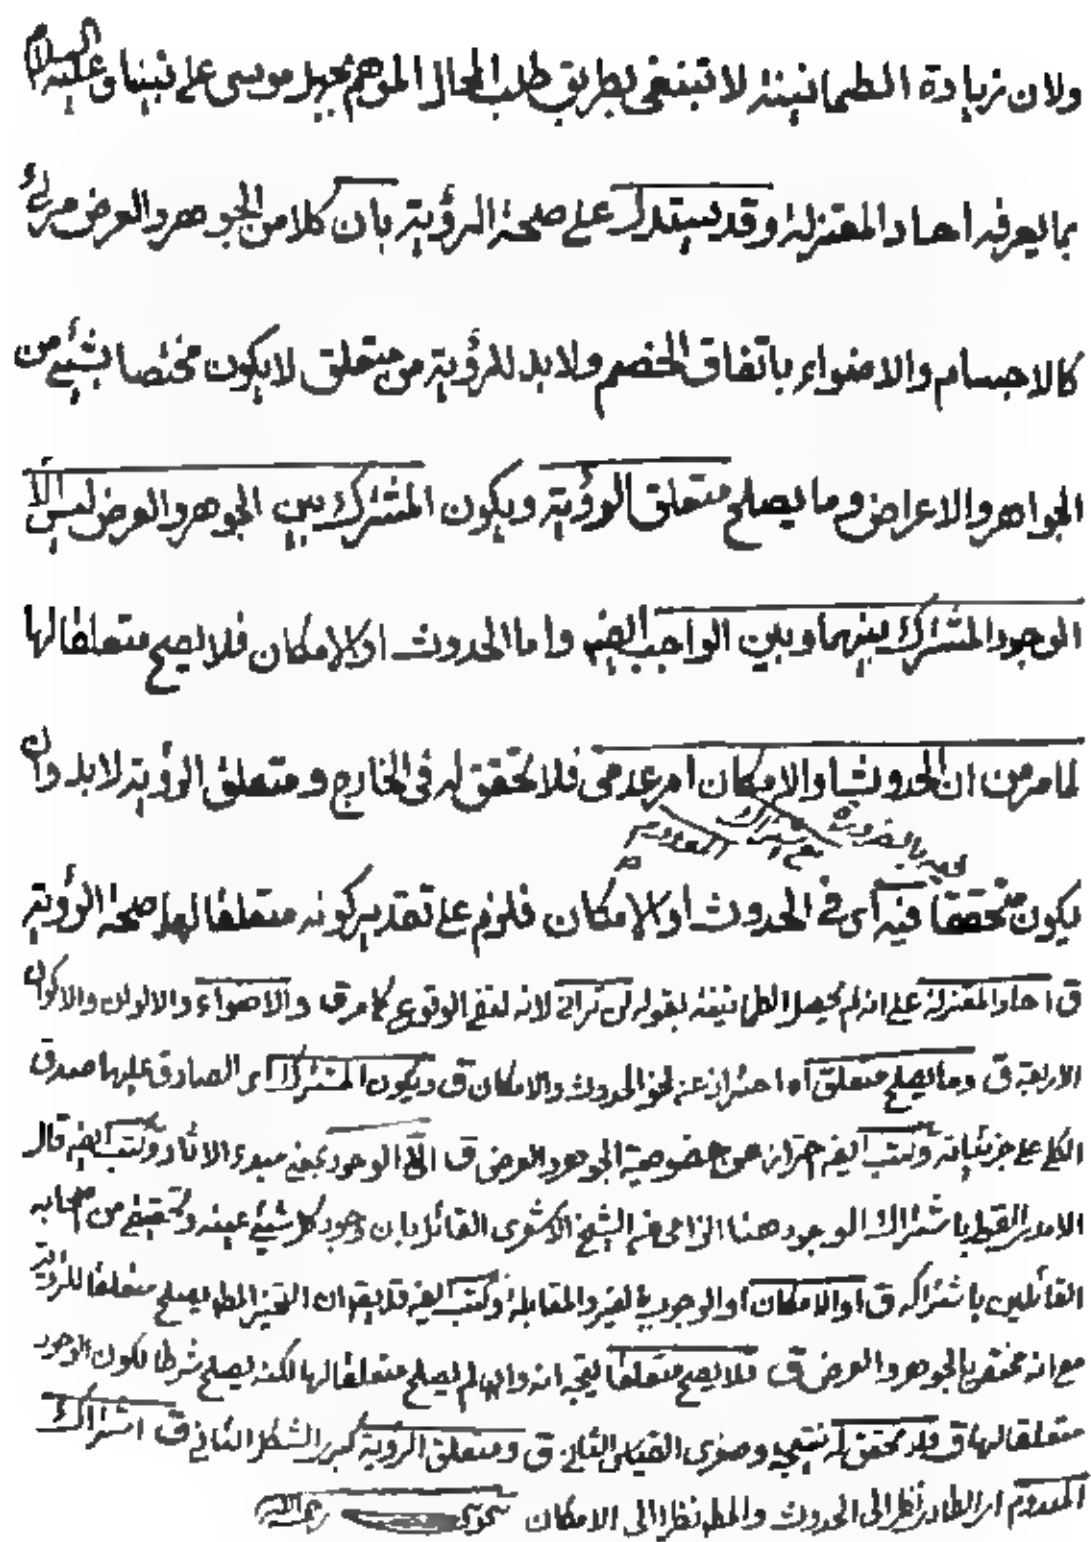 ولان زيادة الطمانينة لا تبتغى بطريق طلب المحال الموهم بجهل موسى على نبينا وعليه السلام
بما يعرفه احاد المعتزلة وقد يستدل على صحة الرؤية بان كلا من الجوهر والعرض مرئ
كالاجسام والاضواء باتفاق الخصم ولا بد للرؤية من متعلق لا يكون مختصا بشئ من
الجواهر والاعراض وما يصلح متعلق الرؤية ويكون المشترك بين الجوهر والعرض ليس الا
الوجود المشترك بينهما وبين الواجب ايضه واما الحدوث او الامكان فلا يصح متعلقا لها
لما مر من ان الحدوث او الامكان امر عدمى فلا تحقق له فى الخارج ومتعلق الرؤية لا بد وان
بالضرورة مع اشتراك المعدوم
يكون متحققا فيه اى فى الحدوث او الامكان فلزم على تقدير كونه متعلقا لها صحة الرؤية
ق احاد المعتزلة على انه لم يحصل الطمانينة بقوله لن ترانى لانه لنفى الوقوع كما مر ق والاضواء والالوان والاكوان
الاربعة ق وما يصلح متعلق اه احتراز عن نحو الحدوث والامكان ق ويكون المشترك الصادق عليها صدق
الكلى على جزئياته وكتب ايضه احتراز عن خصوصية الجوهر والعرض ق الوجود بمعنى مبدء الاثار وكتب ايضه قال
باشتراك الوجود هنا الزامى الشيخ الاشعرى القائل بان وجود كل شئ عينه من اصحابه
القائلين باشتراكه ق او الامكان او الوجود والمقابلة وكتب ايضه فلا يقه ان التحيز المطه يصلح متعلقا للرؤية
مع انه مختص بالجوهر والعرض ق فلا يصح متعلقا يتجه انه وان لم يصلح متعلقا لها لكنه يصلح شرطا لكون الوجود
متعلقا لها ق فلا تحقق له نتيجة وصغرى القياس الثانى ق ومتعلق الروية كبرى الشكل الثانى ق اشتراك
المعدوم نظرا الى الحدوث والمطه نظرا الى الامكان رحمه الله